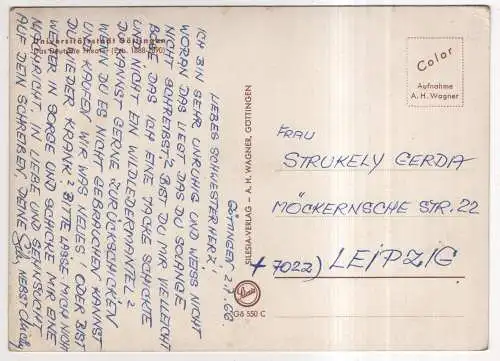 Universitätsstadt Göttingen
Das Deutsche Theater (Erb. 1888-1890)
GÖTTINGEN 2.7.66
LIEBES SCHWESTERHERZ,
ICH BIN SEHR UNRUHIG UND WEISS NICHT
WORAN DAS LIEGT DAS DU SOLANGE
NICHT SCHREIBST? BIST DU MIR VIELLEICHT
BÖSE DAS ICH EINE JACKE SCHICKTE
UND NICHT EIN WILDLEDERMANTEL?
DU KANNST GERNE ZURÜCKSCHICKEN
WENN DU ES NICHT GEBRAUCHEN KANNST
UND KAUFEN WIR WAS NEUES ODER BIST
DU WIEDER KRANK? BITTE LASSE MICH NICHT
WEITER IN SORGE UND SCHICKE MIR EINE
NACHRICHT. IN LIEBE UND SEHNSUCHT
AUF DEIN SCHREIBEN, DEINE NEBST
SILESIA-VERLAG – A. H. WAGNER, GÖTTINGEN
Silesia
Gö 550 C
Color
Aufnahme
A. H. Wagner
FRAU
STRUKELY GERDA
MÖCKERNSCHE STR. 22
+ 7022) LEIPZIG